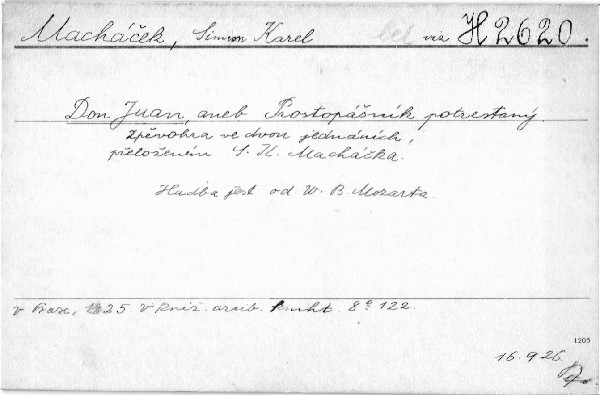 Macháček, Simeon Karel viz H 2620.
Don Juan, aneb Prostopášník potrestaný.
Zpěvohra ve dvou jednáních,
přeložením S. K. Macháčka.
Hudba jest od W. B. Mozarta.
v Praze, 1825 v kníž. arcib. 8º 122.
1205
16.9.26.